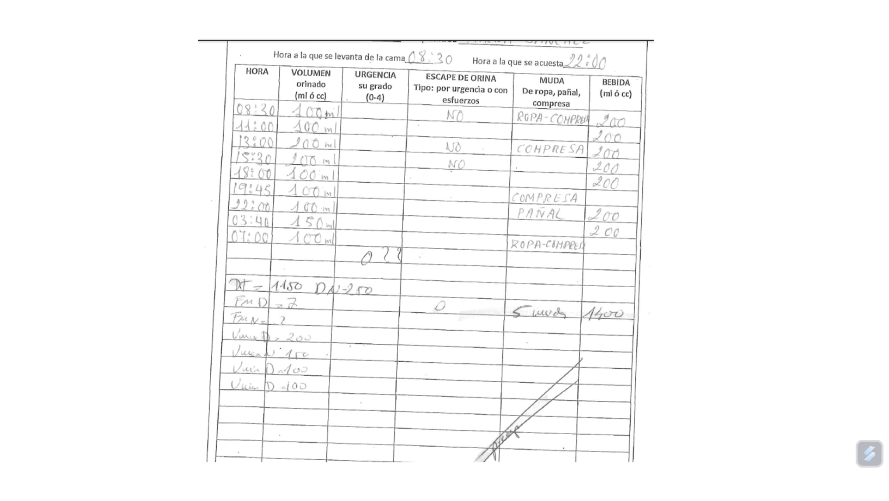 Hora a la que se levanta de la cama 08:30 Hora a la que se acuesta 22:00
HORA VOLUMEN orinado (ml ó cc) URGENCIA su grado (0-4) ESCAPE DE ORINA Tipo: por urgencia o con esfuerzos MUDA De ropa, pañal, compresa BEBIDA (ml ó cc)
08:30 100 ml NO ROPA-COMPRESA 200
11:00 100 ml 200
13:00 200 ml NO COMPRESA 200
15:30 200 ml NO 200
18:00 100 ml 200
19:45 100 ml COMPRESA
22:00 100 ml PAÑAL 200
03:40 150 ml 200
07:00 100 ml ROPA-COMPRES
0 ??
= 1150 DN-250
FMD = 7 0 5 mudas 1400
FMN = 2
Vmax D = 200
Vmax N 150
Vmin D = 100
Vmin D = 100